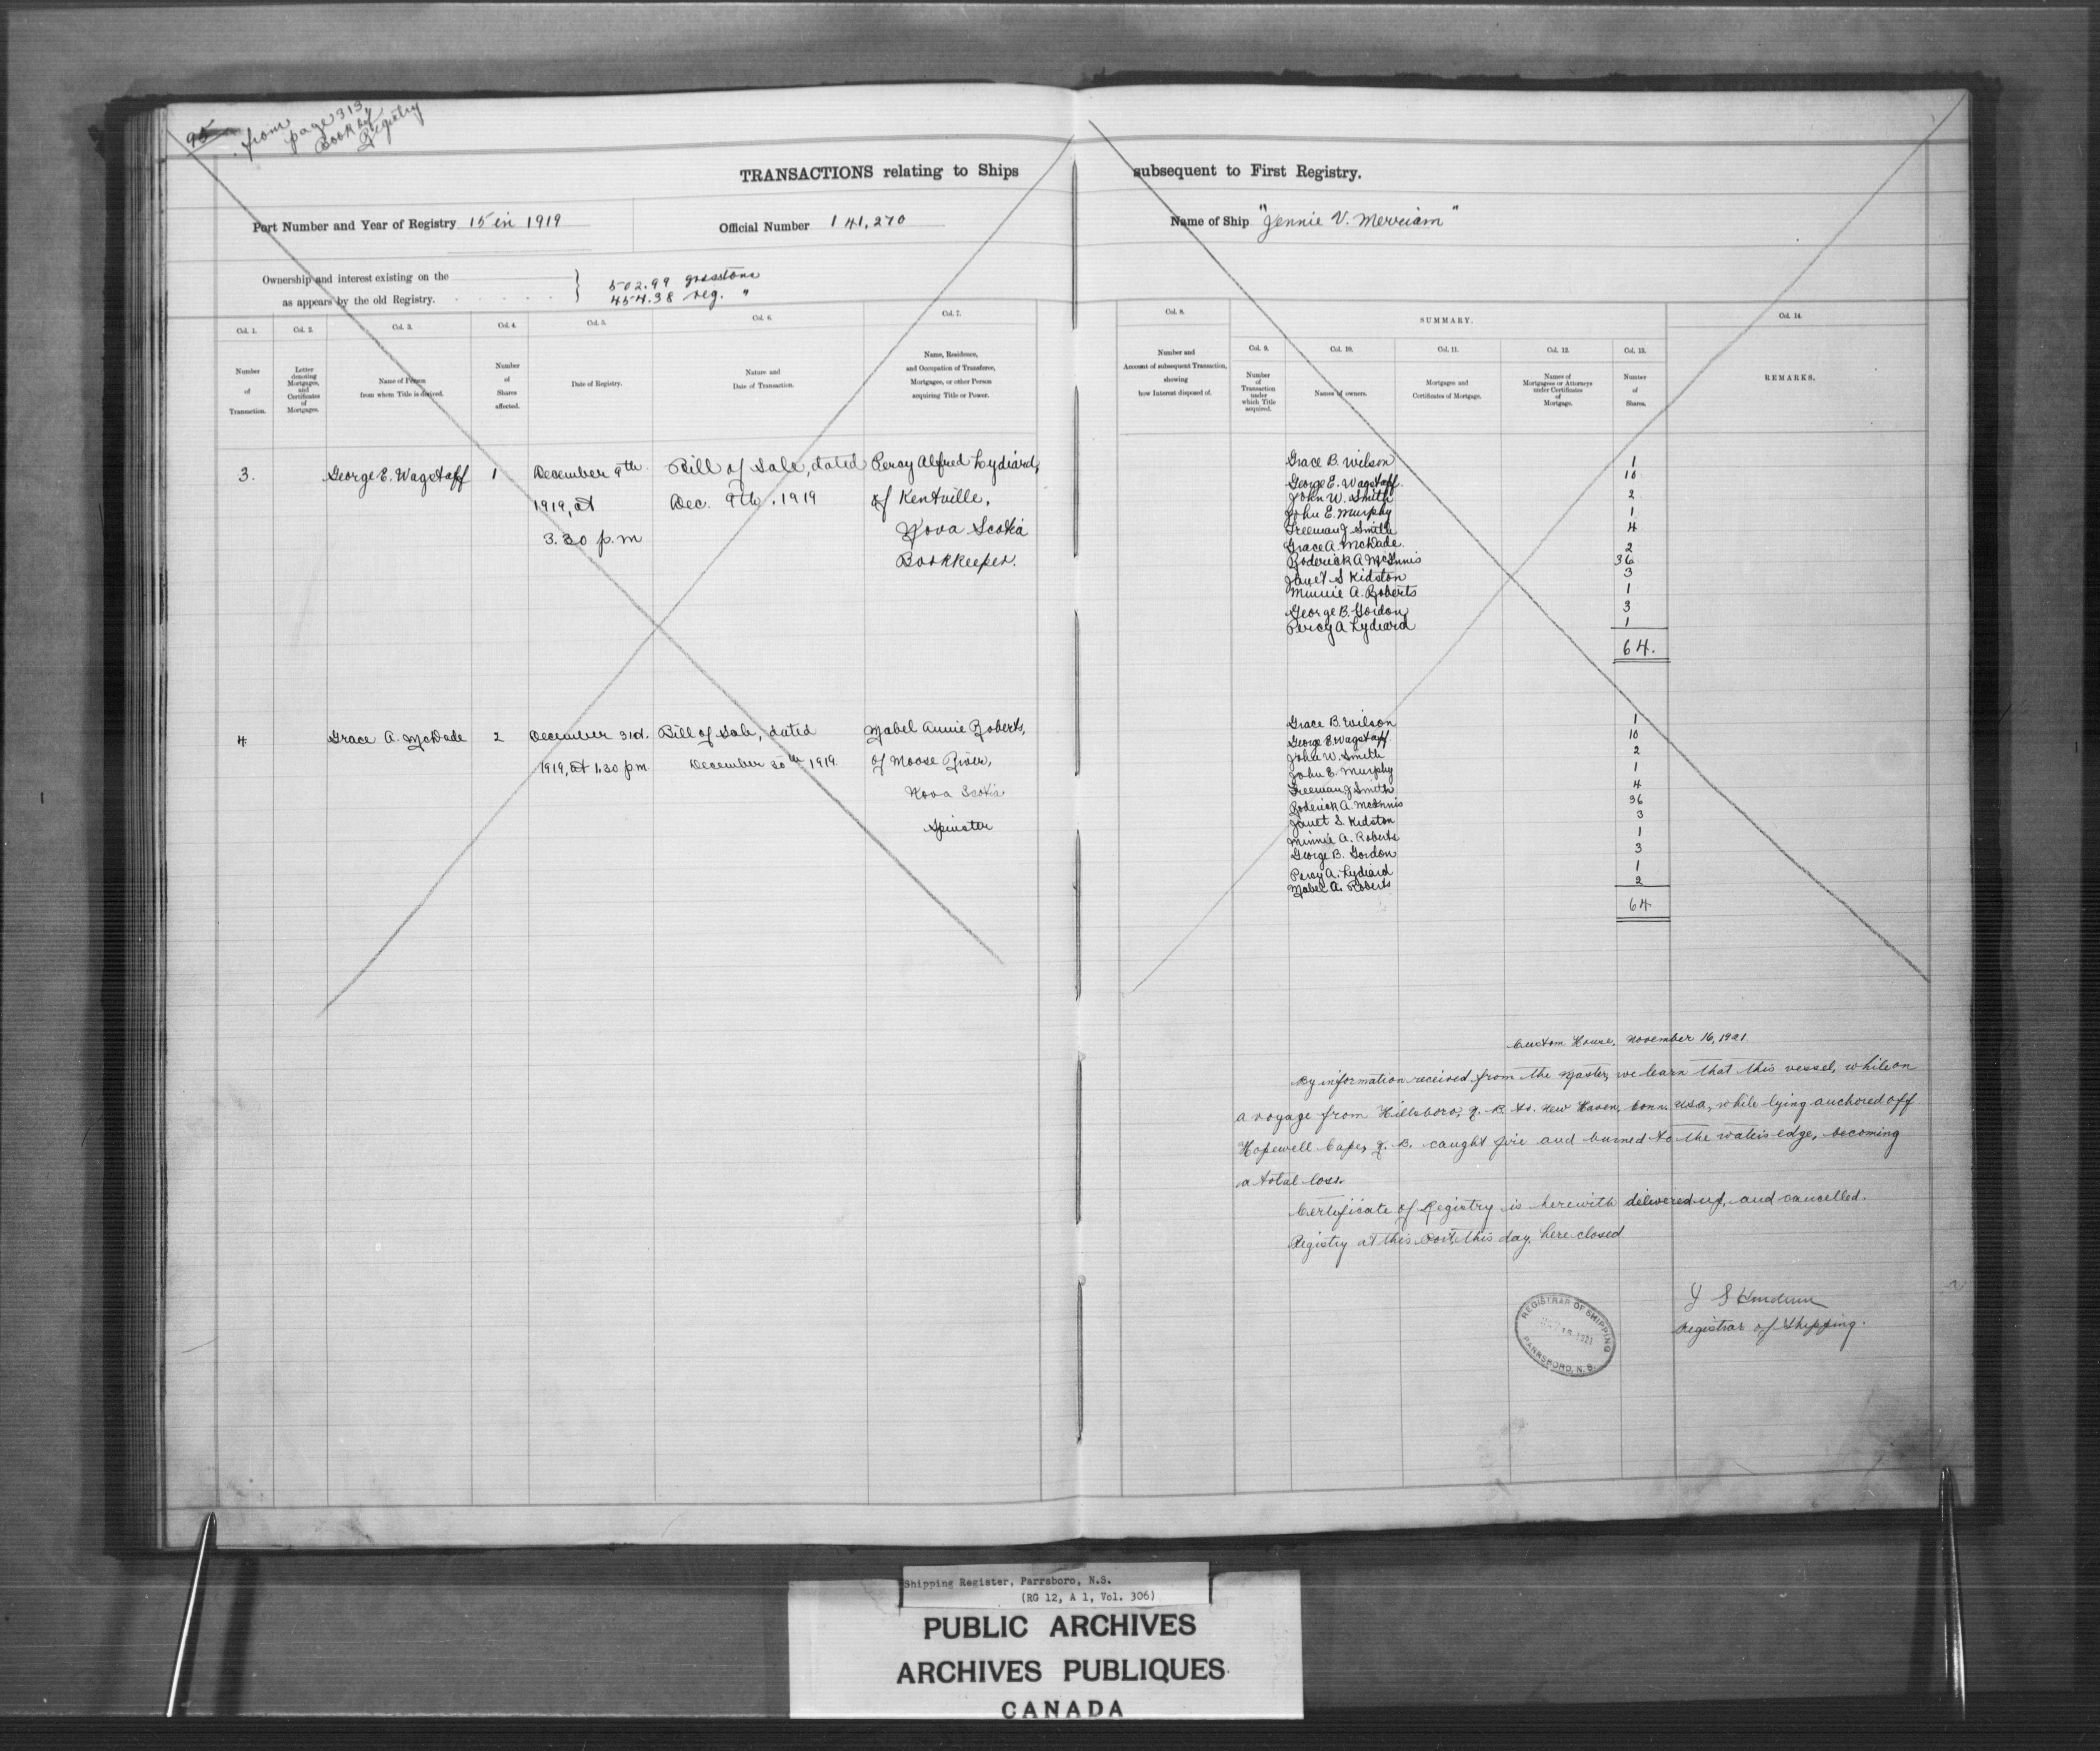 95
from
page 313
Book of
Registry
TRANSACTIONS relating to Ships
subsequent to First Registry.
Port Number and Year of Registry 15 in 1919
Official Number 141,270
Name of Ship "Jennie V. Merriam"
Ownership and interest existing on the
as appears by the old Registry.
502.99 gross tons
454.38 reg. "
Col. 1.
Number
of
Transaction.
Col. 2.
Letter
denoting
Mortgages,
and
Certificates
of
Mortgages.
Col. 3.
Name of Person
from whom Title is derived.
Col. 4.
Number
of
Shares
affected.
Col. 5.
Date of Registry.
Col. 6.
Nature and
Date of Transaction.
Col. 7.
Name, Residence,
and Occupation of Transferee,
Mortgagee, or other Person
acquiring Title or Power.
Col. 8.
Number and
Account of subsequent Transaction,
showing
how Interest disposed of.
SUMMARY.
Col. 9.
Number
of
Transaction
under
which Title
acquired.
Col. 10.
Names of owners.
Col. 11.
Mortgages and
Certificates of Mortgage.
Col. 12.
Names of
Mortgagees or Attorneys
under Certificates
of
Mortgage.
Col. 13.
Number
of
Shares.
Col. 14.
REMARKS.
3.
George E. Wagstaff
1
December 9th
1919, at
3.30 p.m
Bill of Sale, dated
Dec. 9th, 1919
Percy Alfred Lydiard,
of Kentville,
Nova Scotia
Bookkeeper.
Grace B. Wilson 1
George E. Wagstaff 10
John W. Smith 2
John E. Murphy 1
Freeman J Smith 4
Grace A. McDade. 2
Roderick A McInnis 36
Janet S Kidston 3
Minnie A. Roberts 1
George B. Gordon 3
Percy A Lydiard 1
64.
4.
Grace A. McDade
2
December 31st.
1919, at 1.30 p.m.
Bill of Sale, dated
December 30th 1919
Mabel Annie Roberts,
of Moose River,
Nova Scotia
Spinster
Grace B. Wilson 1
George E. Wagstaff 10
John W. Smith 2
John E. Murphy 1
Freeman J Smith 4
Roderick A. McInnis 36
Janet S. Kidston 3
Minnie A. Roberts 1
George B. Gordon 3
Percy A. Lydiard 1
Mabel A. Roberts 2
64
Custom House, November 16, 1921
By information received from the Master, we learn that this vessel, while on
a voyage from Hillsboro, N. B. to. New Haven, Conn, USA, while lying anchored off
Hopewell Cape, N. B. caught fire and burned to the water's edge, becoming
a total loss.
Certificate of Registry is herewith delivered up, and cancelled.
Registry at this Port, this day, here closed
Registrar of Shipping.
REGISTRAR OF SHIPPING
1921
PARRSBORO, N. S.
Shipping Register, Parrsboro, N.S.
(RG 12, A 1, Vol. 306)
PUBLIC ARCHIVES
ARCHIVES PUBLIQUES
CANADA